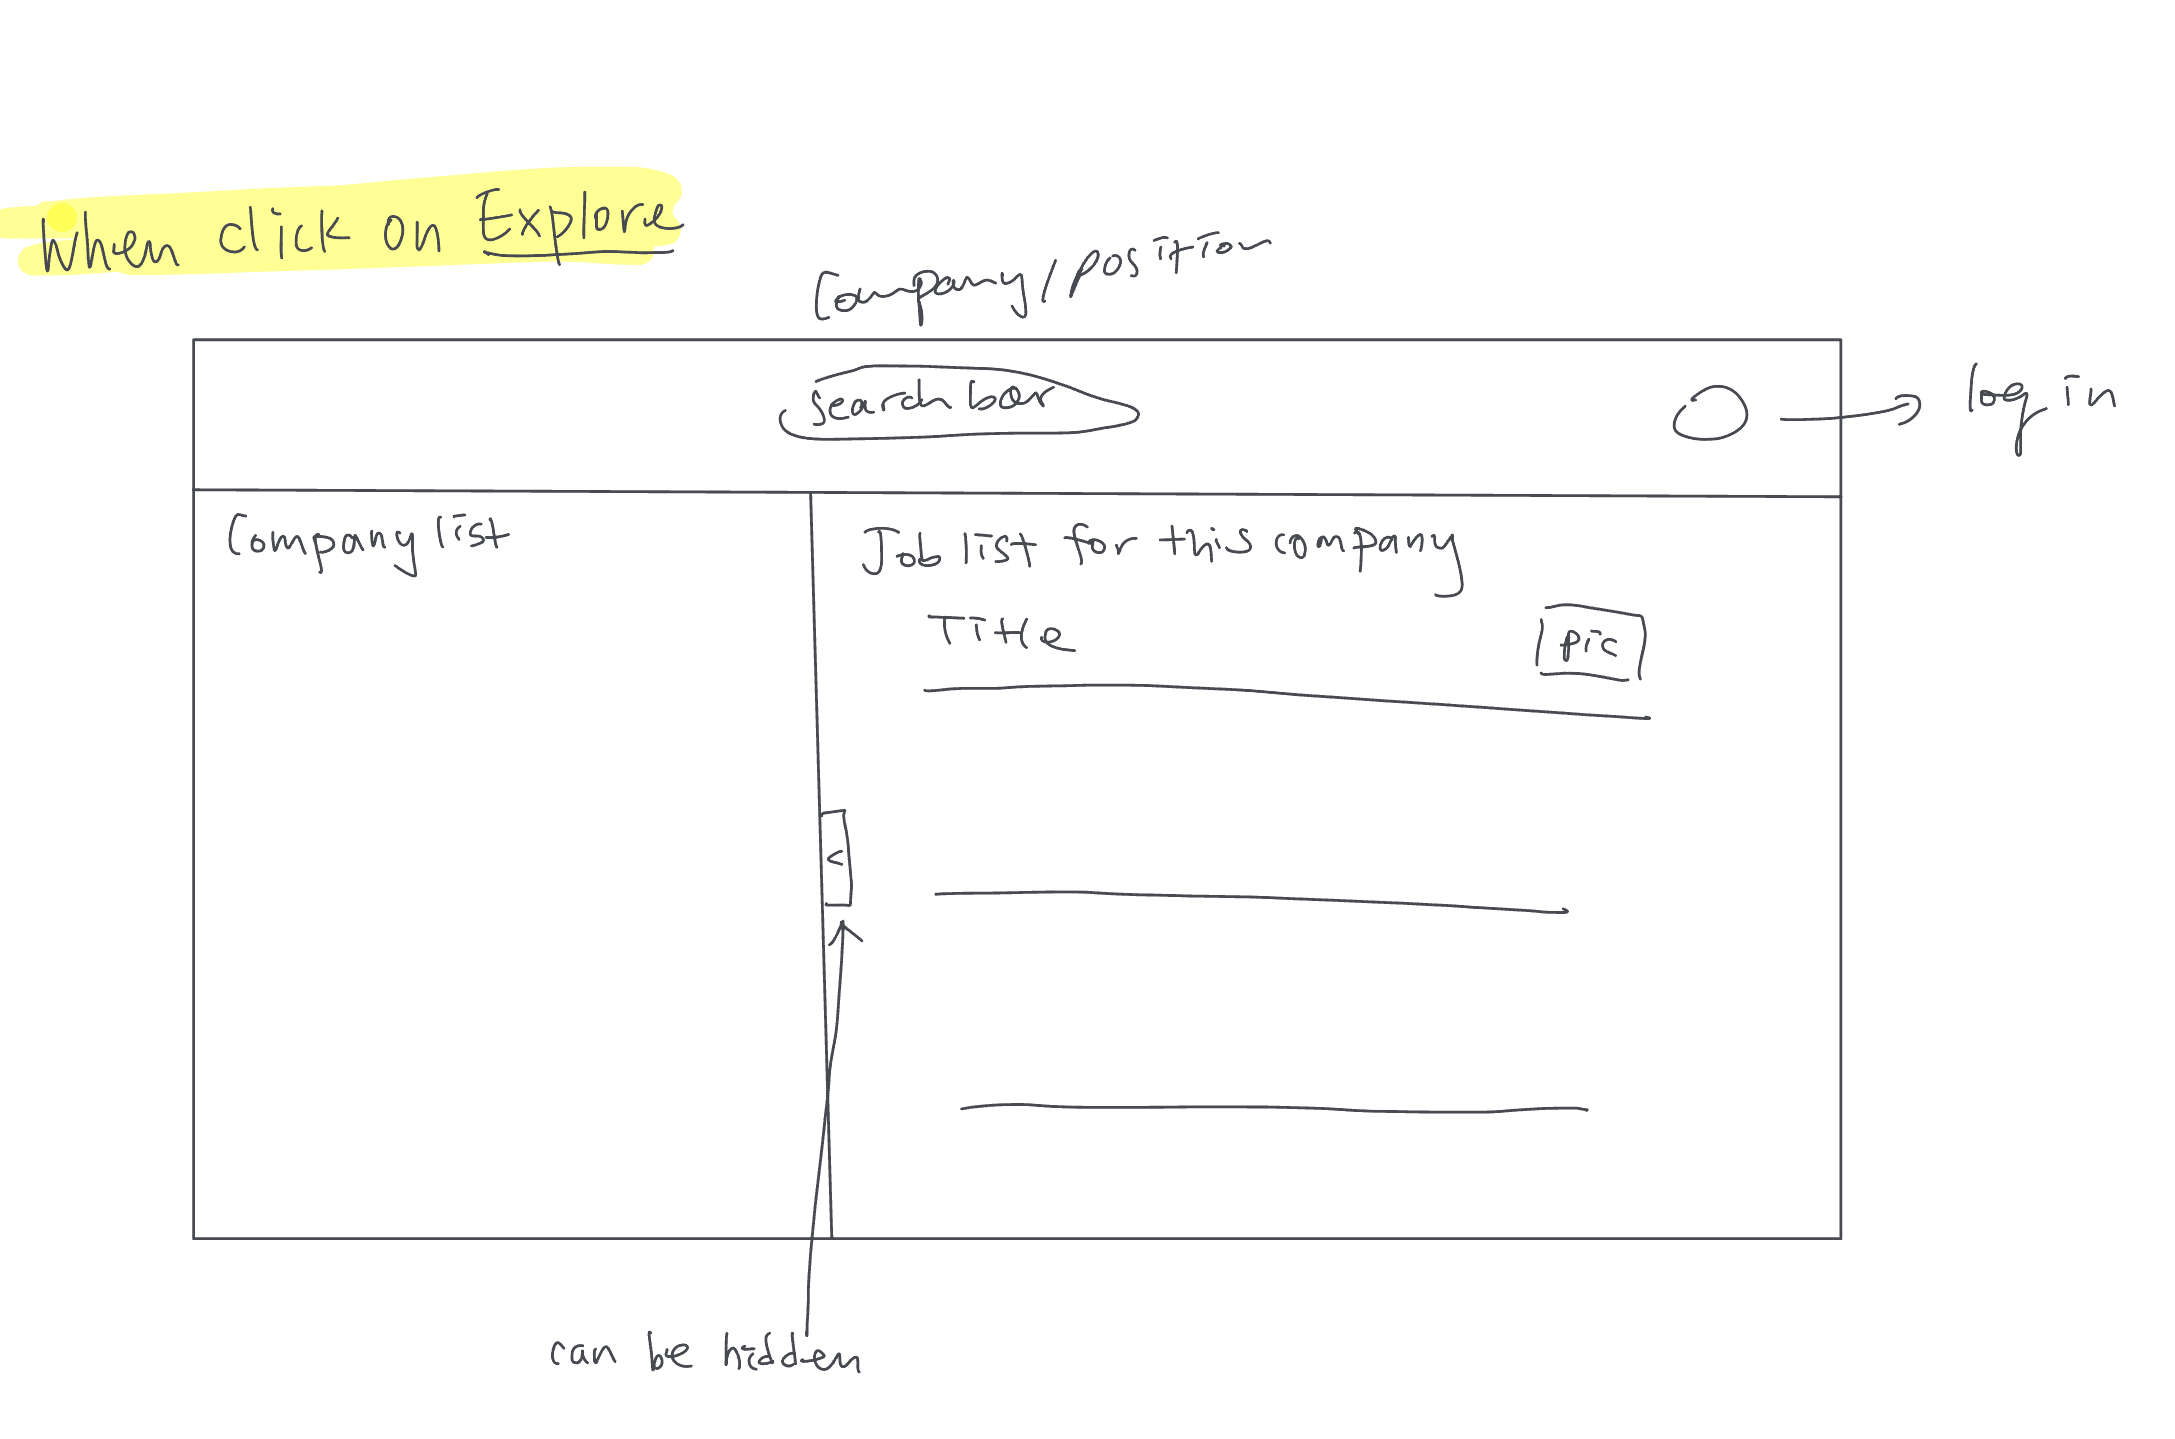 When click on Explore
Company/position
search bar
log in
Company list
Job list for this company
Title
pic
<
can be hidden